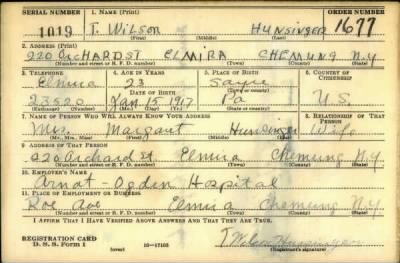 SERIAL NUMBER 1. NAME (Print) ORDER NUMBER
1019 T. WILSON HUNSINGER 1677
(First) (Middle) (Last)
2. ADDRESS (Print)
220 ORCHARD ST ELMIRA CHEMUNG N.Y
(Number and street or R. F. D. number) (Town) (County) (State)
3. TELEPHONE 4. AGE IN YEARS 5. PLACE OF BIRTH 6. COUNTRY OF CITIZENSHIP
Elmira 23 Sayre
DATE OF BIRTH (Town or county)
23520 Jan 15 1917 Pa U.S.
(Exchange) (Number) (Mo.) (Day) (Yr.) (State or country)
7. NAME OF PERSON WHO WILL ALWAYS KNOW YOUR ADDRESS 8. RELATIONSHIP OF THAT PERSON
Mrs. Margart Hunsinger Wife
(Mr., Mrs., Miss) (First) (Middle) (Last)
9. ADDRESS OF THAT PERSON
220 Orchard St Elmira Chemung N.Y
(Number and street or R. F. D. number) (Town) (County) (State)
10. EMPLOYER'S NAME
Arnot Ogden Hospital
11. PLACE OF EMPLOYMENT OR BUSINESS
Roe Ave Elmira Chemung N.Y.
(Number and street or R. F. D. number) (Town) (County) (State)
I AFFIRM THAT I HAVE VERIFIED ABOVE ANSWERS AND THAT THEY ARE TRUE.
REGISTRATION CARD T Wilson Hunsinger
D. S. S. Form 1 (over) 16—17105 (Registrant's signature)